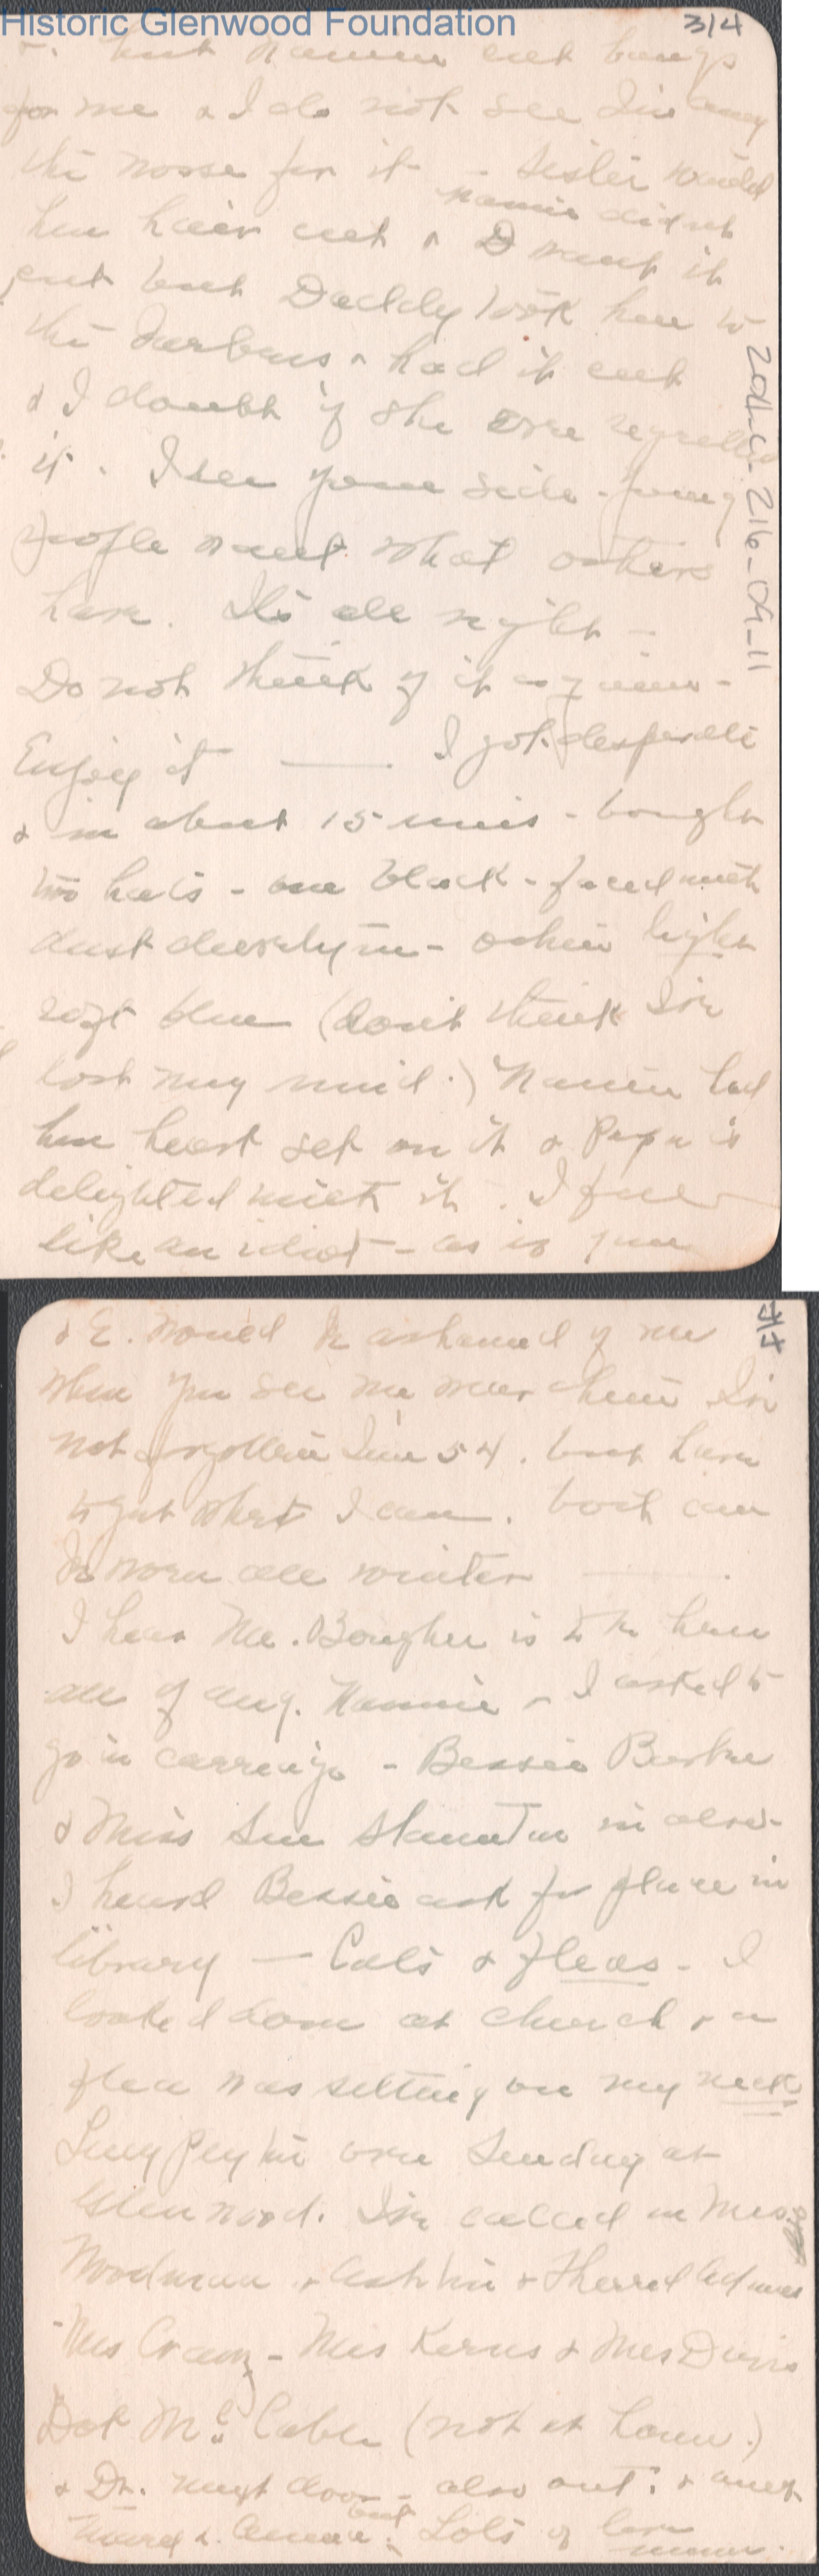 Historic Glenwood Foundation
3/4
but Nannie cut bangs
for me & I do not see I'm any
the worse for it - Sister would
her hair cut & Nannie didnt want it
cut but Daddy took her to
the barbers & had it cut
& I doubt if she ever regretted
it. I see your side - young
people want what others
have. It's all right -
Do not think of it again -
Enjoy it — I got desperate
& in about 15 mins - bought
two hats - one black - faced with
dust - other light
soft blue (don't think I've
lost my mind.) Nannie had
her heart set on it & Papa is
delighted with it. I feel
like an idiot - as if you
2014-C-216-09-11
4/4
& E. would be ashamed of me
when you see me wear them I've
not forgotten I'm 54. but have
to get what I can. both can
be worn all winter —.
I hear Mr. Bougher is to be here
all of Aug. Nannie & I asked to
go in carriage - Bessie Burke
& Miss Sue Staunton in also -
I heard Bessie ask for place in
library — Cats & fleas - I
looked down at church & a
flea was setting on my neck
Lucy Peyton over Sunday at
Glenwood. I've called on Mrs
Woodman & & Adams
Mrs Crany - Mrs Kerns & Mrs Davis
Dot McCabe (not at home.)
& Dr. next door - also out. & Aunt
but Lots of love